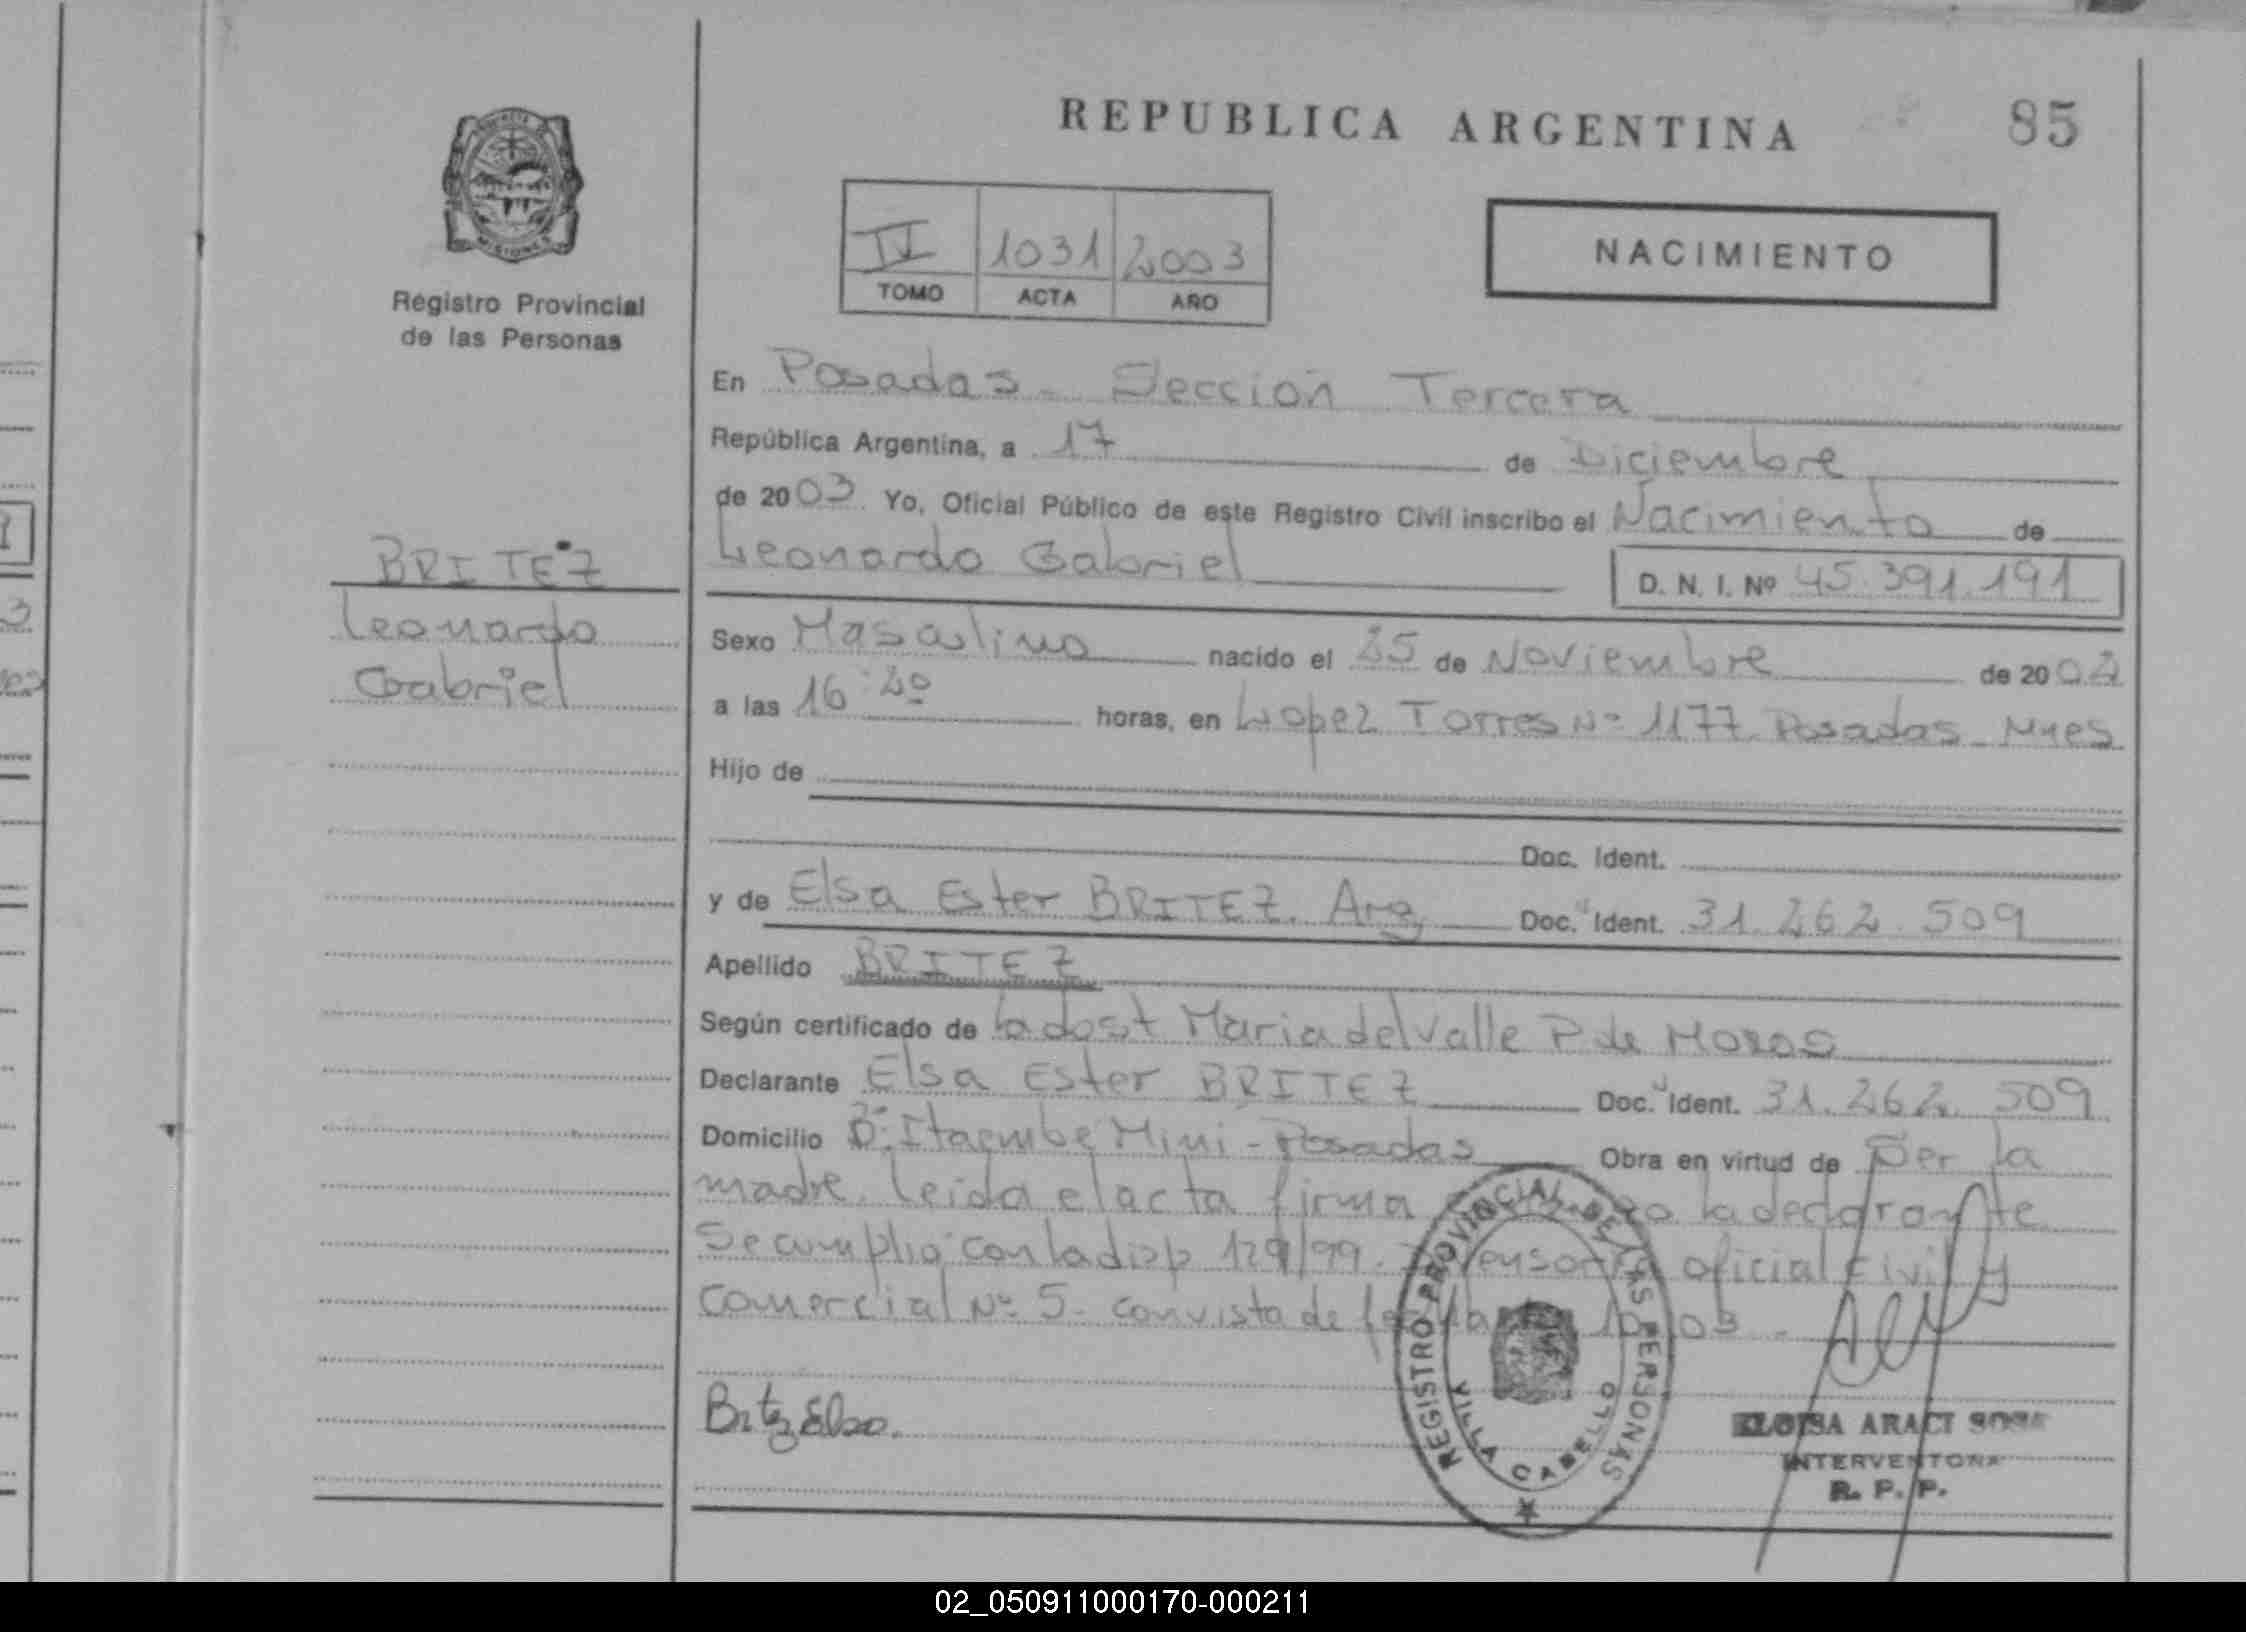 REPUBLICA ARGENTINA
85
PROVINCIA DE
MISIONES
Registro Provincial
de las Personas
IV 1031 2003
TOMO ACTA AÑO
NACIMIENTO
BRITEZ
Leonardo
Gabriel
En Posadas - Sección Tercera
República Argentina, a 17 de Diciembre
de 2003. Yo, Oficial Público de este Registro Civil inscribo el Nacimiento de
Leonardo Gabriel D. N. I. Nº 45.391.191
Sexo Masculino nacido el 25 de Noviembre de 2002
a las 16:20 horas, en Lopez Torres Nº 1177 Posadas Mnes
Hijo de
Doc. Ident.
y de Elsa Ester BRITEZ. Arg Doc. Ident. 31.262.509
Apellido BRITEZ
Según certificado de la dost Maria del Valle P. de
Declarante Elsa Ester BRITEZ Doc. Ident. 31.262.509
Domicilio Bº Itaembé Mini - Posadas Obra en virtud de Ser la
madre. Leida el acta firma la declarante
Se cumplió con la disp 129/99. oficial civil y
Comercial Nº 5 - con vista de 03 -
Britez Elsa.
REGISTRO PROVINCIAL DE LAS PERSONAS
VILLA CABELLO
ELOISA ARACI SOSA
INTERVENTORA
R. P. P.
02_050911000170-000211